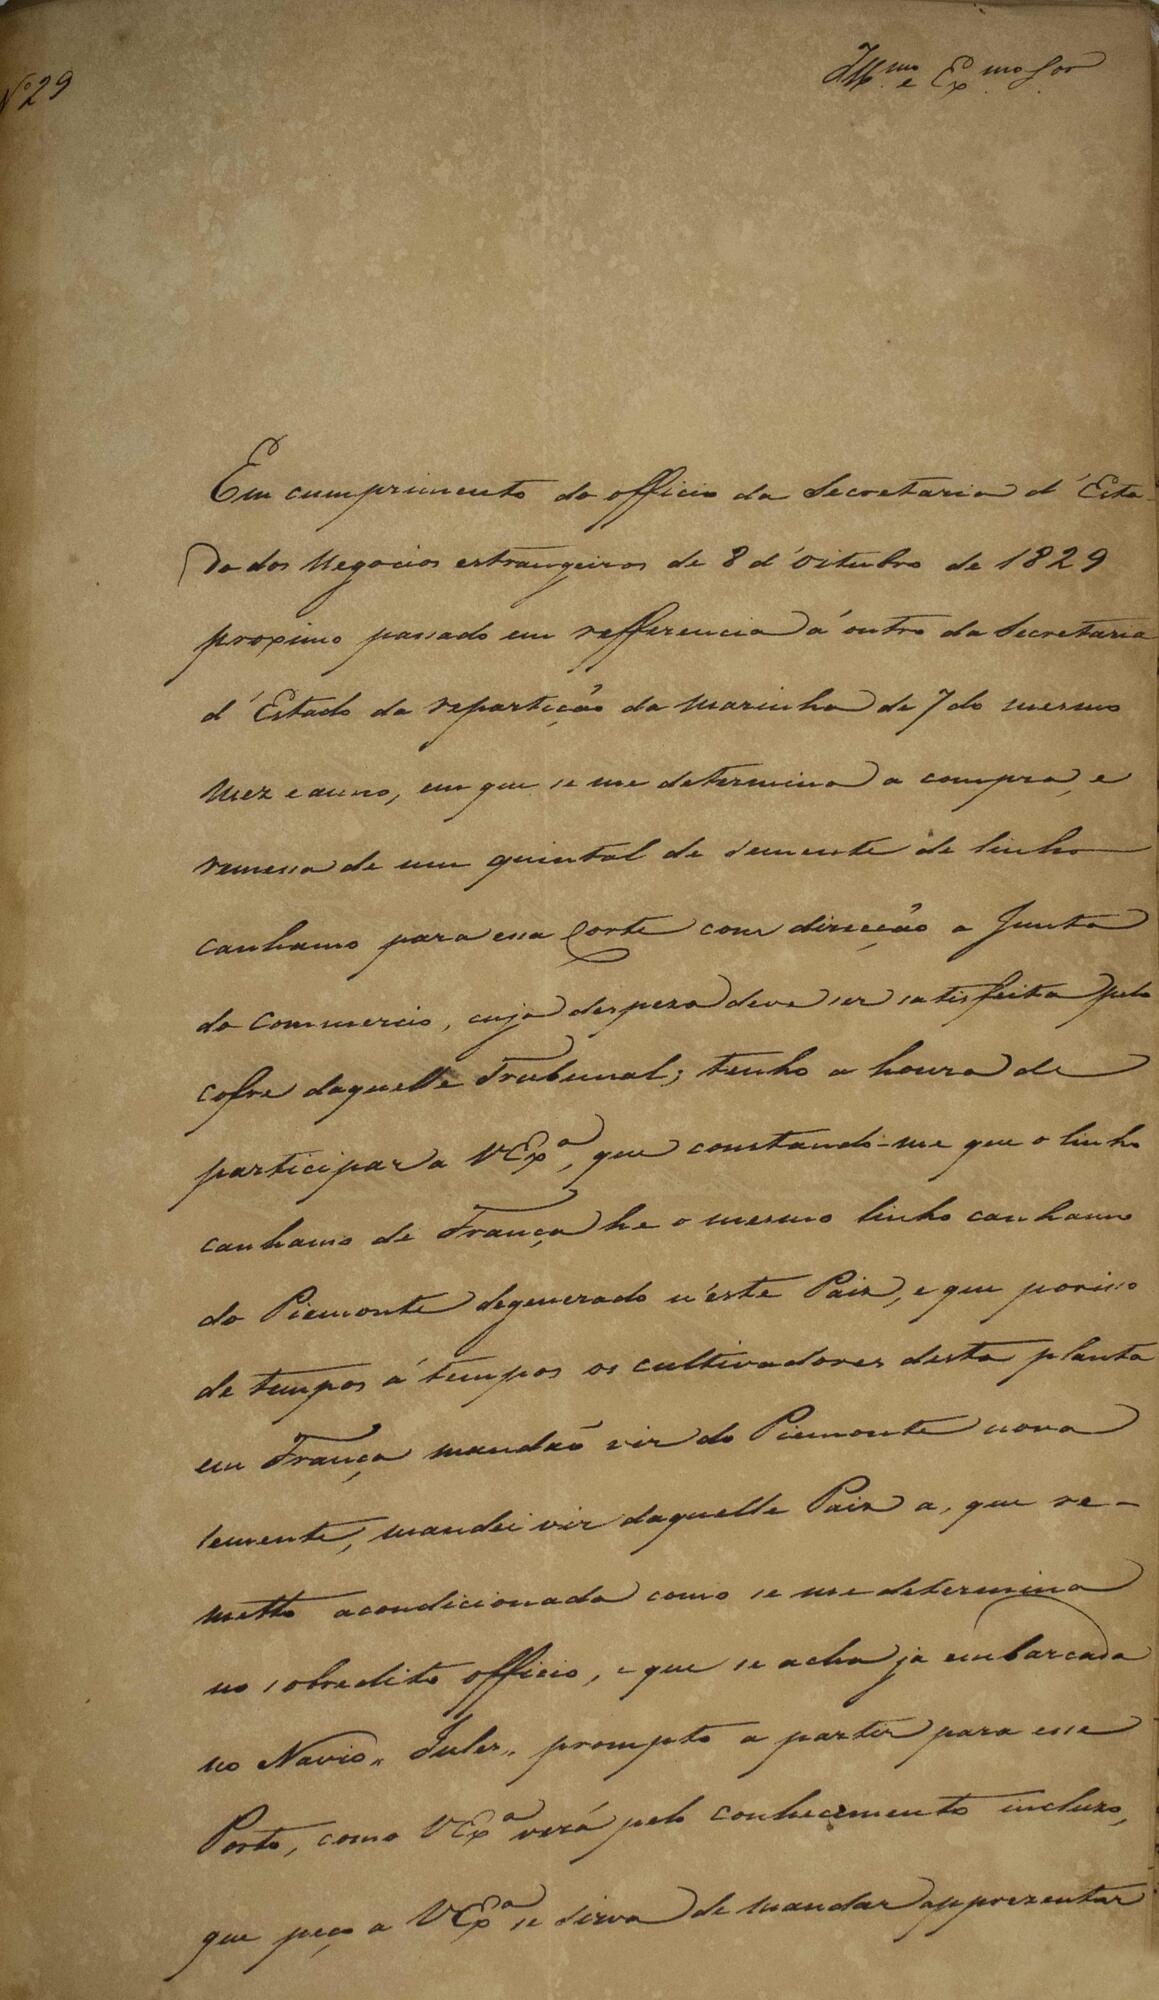 Nº 29
Illmo. e Exmo. Sor.
Em cumprimento do officio da Secretaria d'Esta-
do dos Negocios estrangeiros de 8 d'Oitubro de 1829
proximo passado em refferencia á outro da Secretaria
d'Estado da repartição da Marinha de 7 do mesmo
Mez e anno, em que se me determina a compra, e
remessa de um quintal de semente de linho
canhamo para essa Corte com direcção a Junta
do Commercio, cuja despeza deve ser satisfeita pelo
cofre daquelle Trubunal; tenho a honra de
participar a VExª, que constando-me que o linho
canhamo de França he o mesmo linho canhamo
do Piemonte degenerado n'este Paiz, e que porisso
de tempos á tempos os cultivadores desta planta
em França mandão vir do Piemonte nova
semente, mandei vir daquelle Paiz a, que re-
metto acondicionada como se me determina
no sobredito officio, e que se acha já embarcada
no Navio "Jules" prompto a partir para esse
Porto, como VExª verá pelo conhecimento incluzo,
que peço a VExª se sirva de mandar apprezentar